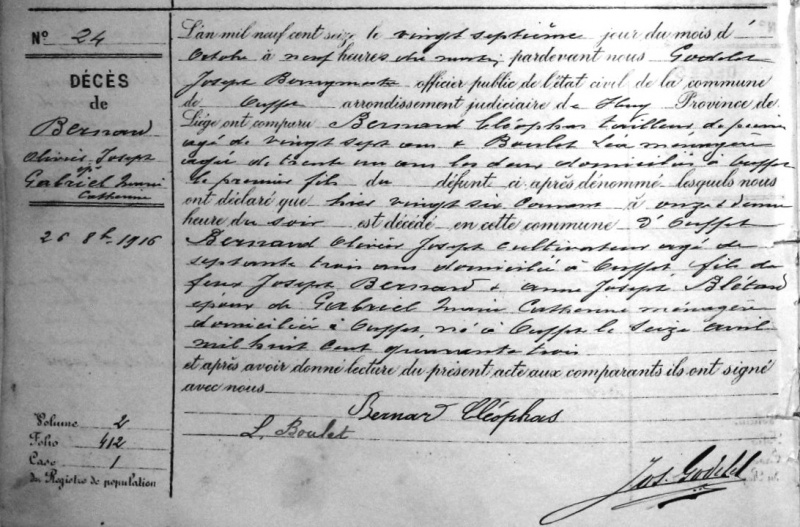 N° 24
DÉCÈS
de
Bernard
Olivier Joseph
ép.
Gabriel Marie
Catherine
26 8bre 1916
Volume 2
Folio 412
Case 1
du Registre de population
L'an mil neuf cent seize le vingt septième jour du mois d'
Octobre à neuf heures du matin, pardevant nous Godelet
Joseph Bourgmestre officier public de l'état civil de la commune
de Ouffet arrondissement judiciaire de Huy Province de
Liége ont comparu Bernard Cléophas tailleur de pierre
agé de vingt sept ans & Boulet Léa ménagère
agée de trente un ans les deux domiciliés à Ouffet
le premier fils du défunt ci après dénommé lesquels nous
ont déclaré que hier vingt six courant à onze & demie
heure du soir est décédé en cette commune d'Ouffet
Bernard Olivier Joseph cultivateur agé de
septante trois ans domicilié à Ouffet, fils de
feus Joseph Bernard & Anne Joseph Blétard
époux de Gabriel Marie Catherine ménagère
domiciliée à Ouffet né à Ouffet le seize avril
mil huit cent quarante trois
et après avoir donné lecture du présent acte aux comparants ils ont signé
avec nous
Bernard Cléophas
L. Boulet
Jos. Godelet